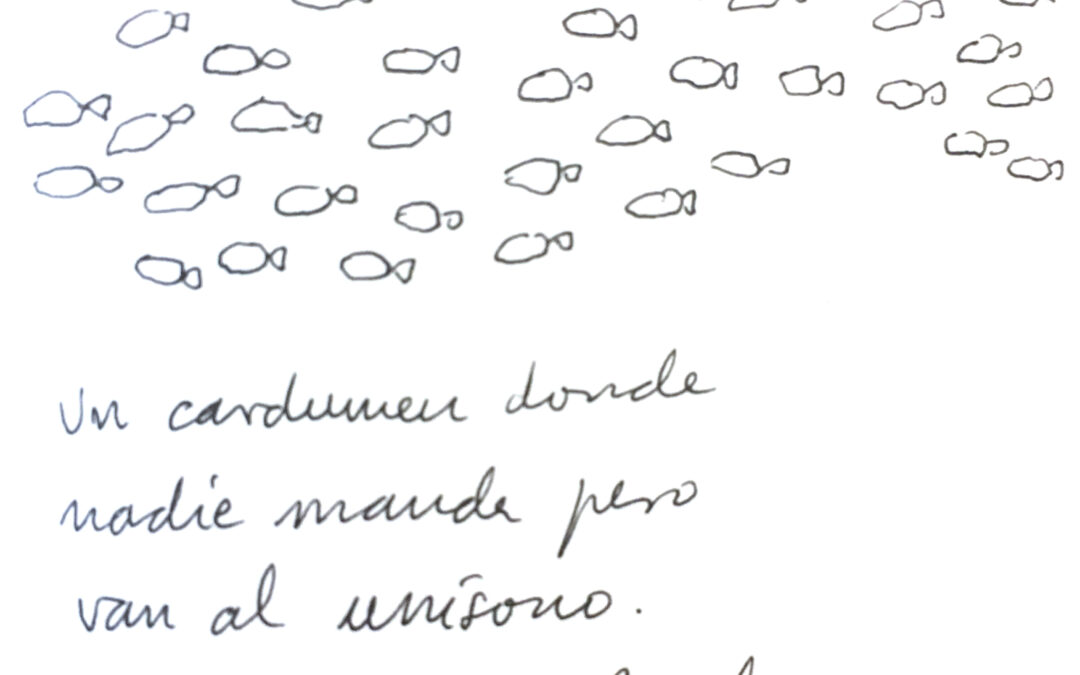 Un cardumen donde
nadie manda pero
van al unísono.